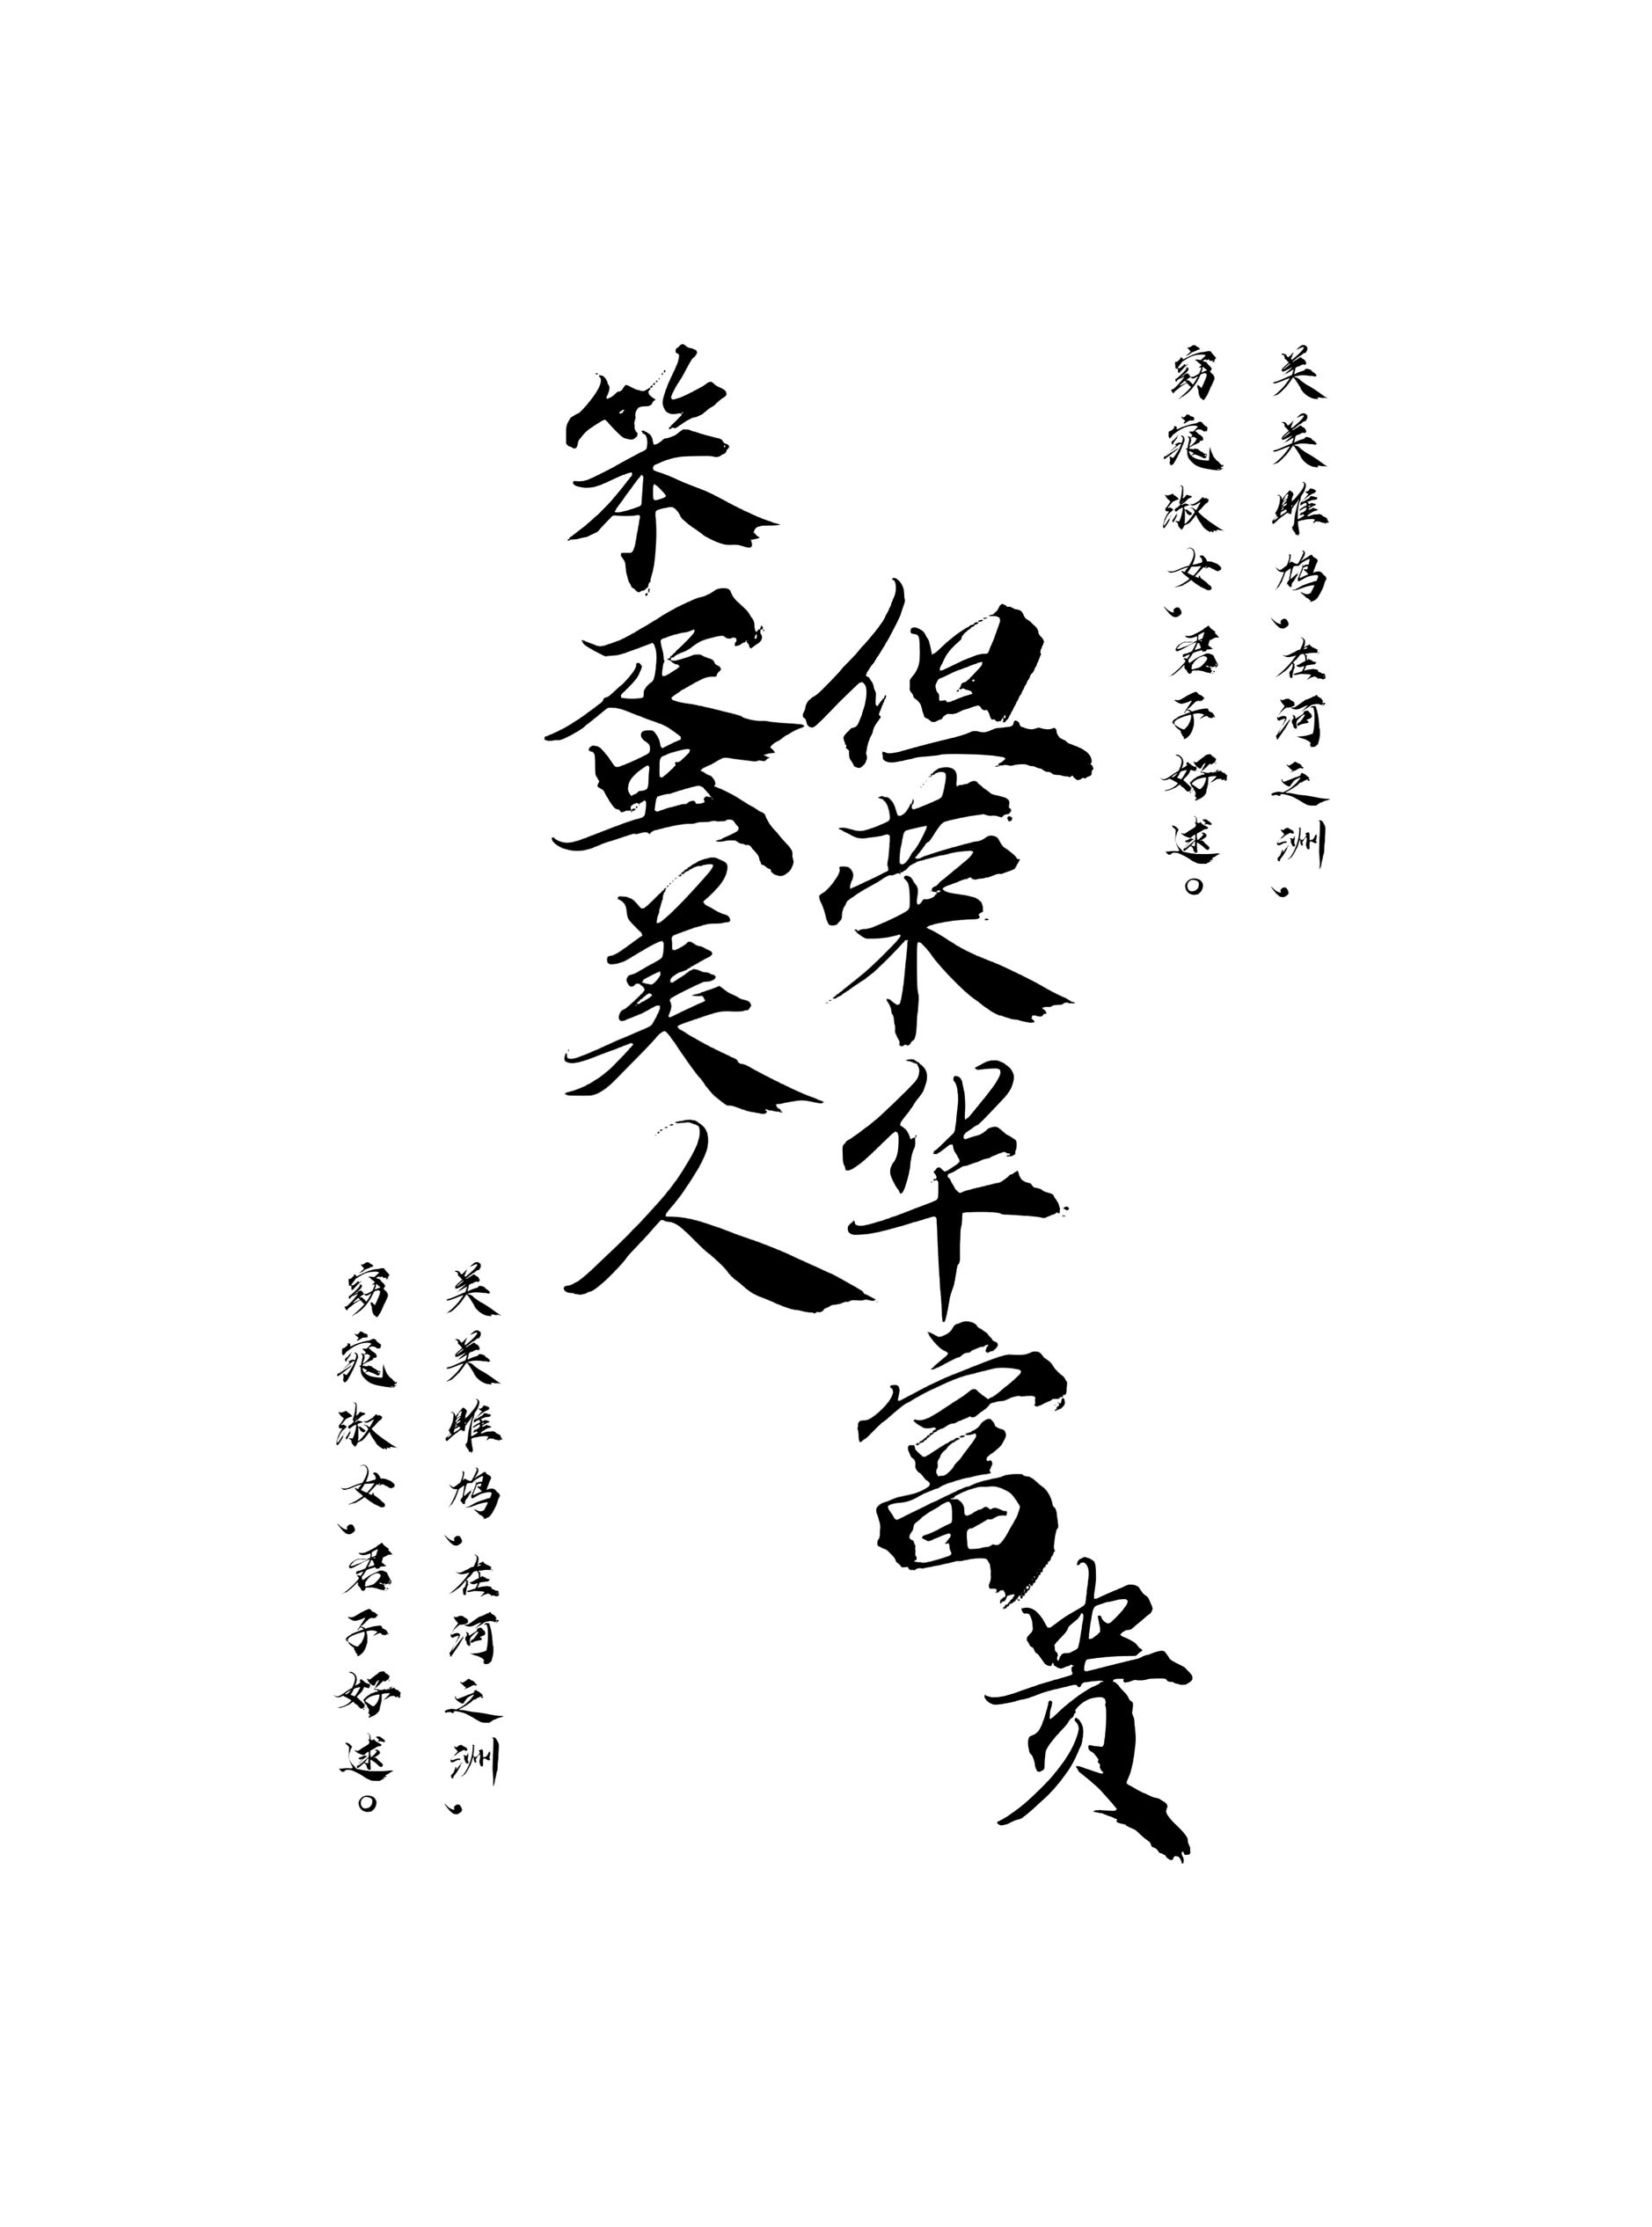 关关雎鸠，在河之洲，
窈窕淑女，君子好逑。
但荣华富贵
笨蛋美人
关关雎鸠，在河之洲，
窈窕淑女，君子好逑。